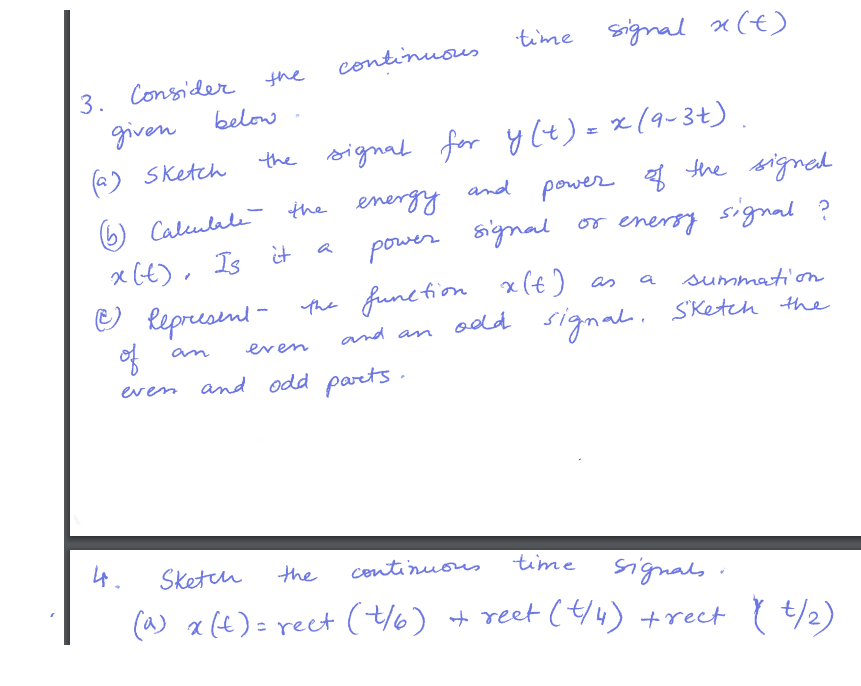 3. Consider the continuous time signal x(t)
given below.
(a) Sketch the signal for y(t) = x(9-3t).
(b) Calculate the energy and power of the signal
x(t). Is it a power signal or energy signal?
(c) Represent the function x(t) as a summation
of an even and an odd signal. Sketch the
even and odd parts.
4. Sketch the continuous time signals.
(a) x(t) = rect (t/6) + rect (t/4) + rect (t/2)